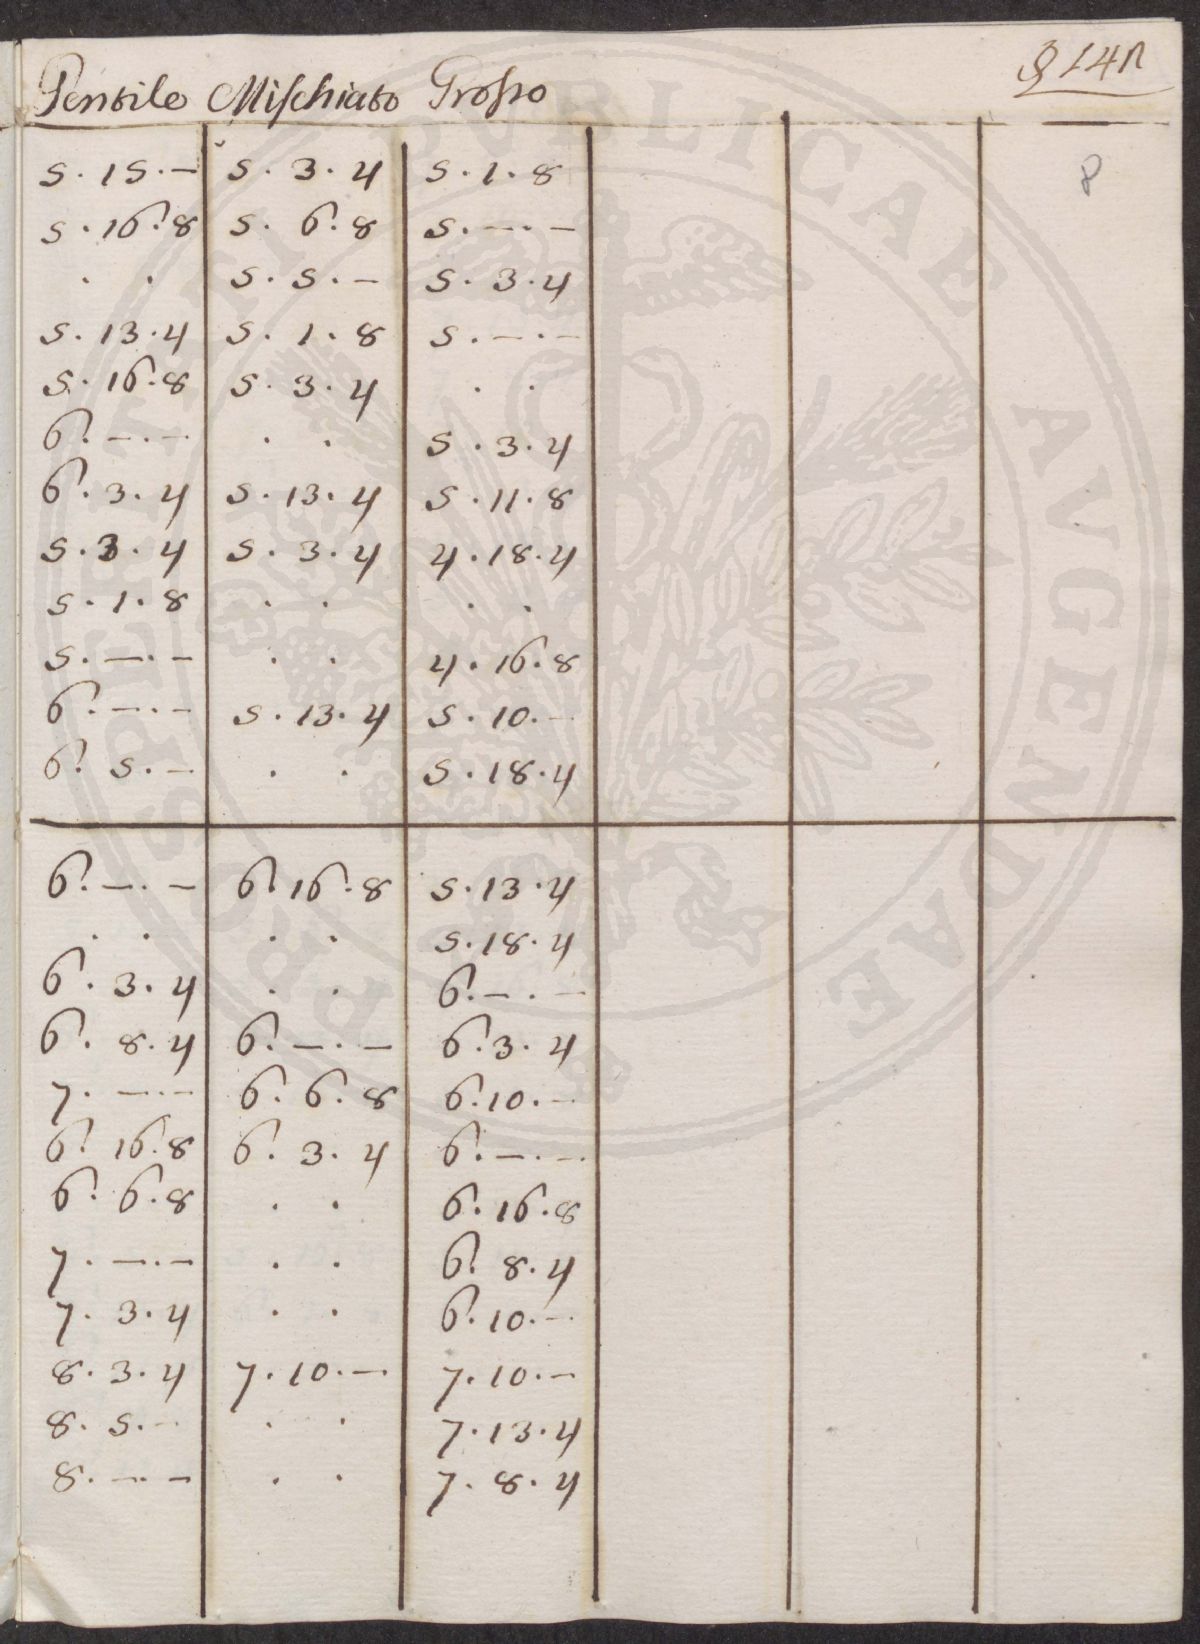 Gentile Mischiato Grosso
8
5.15.— 5.3.4 5.1.8
5.16.8 5.6.8 5.—.—
. . 5.5.— 5.3.4
5.13.4 5.1.8 5.—.—
5.16.8 5.3.4 . .
6.—.— . . 5.3.4
6.3.4 5.13.4 5.11.8
5.3.4 5.3.4 4.18.4
5.1.8 . . . .
5.—.— . . 4.16.8
6.—.— 5.13.4 5.10.—
6.5.— . . 5.18.4
6.—.— 6.16.8 5.13.4
. . . . 5.18.4
6.3.4 . . 6.—.—
6.8.4 6.—.— 6.3.4
7.—.— 6.6.8 6.10.—
6.16.8 6.3.4 6.—.—
6.6.8 . . 6.16.8
7.—.— . . 6.8.4
7.3.4 . . 6.10.—
8.3.4 7.10.— 7.10.—
8.5.— . . 7.13.4
8.—.— . . 7.8.4
PUBLICAE AUGENDAE PROSPERITATI